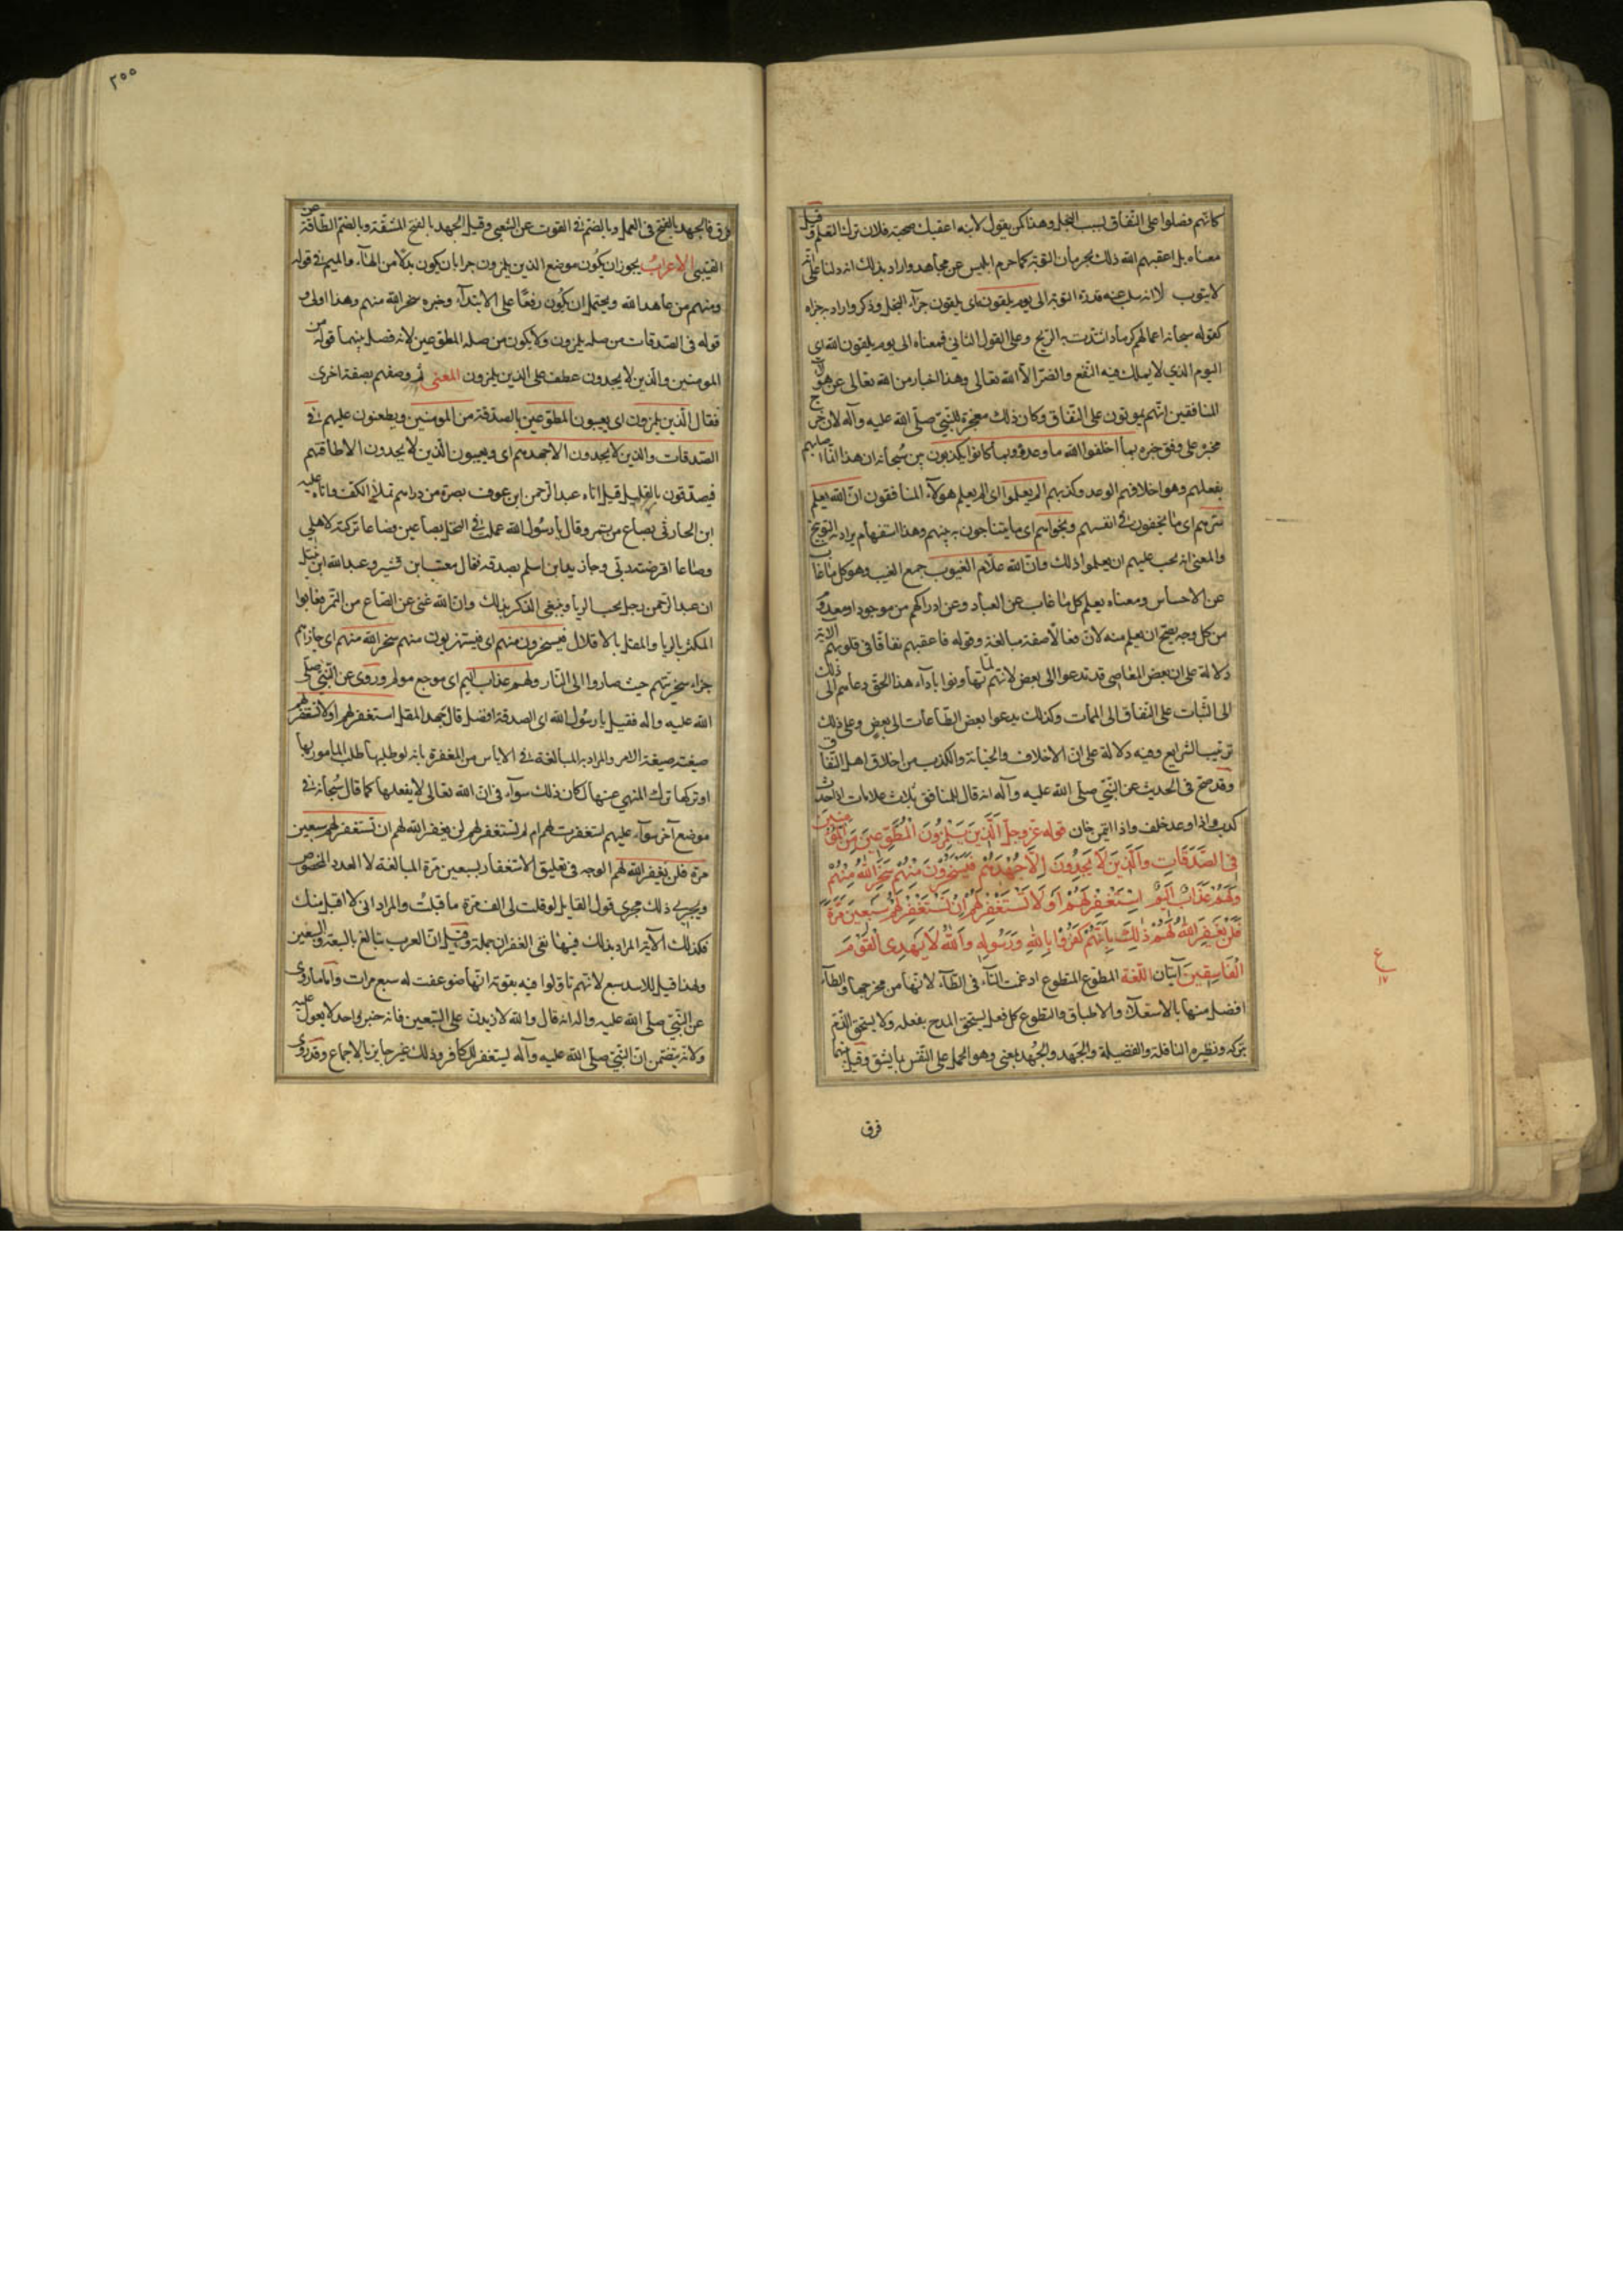 كانهم وصلوا على النفاق بسبب البخل وهذا كمن يقول لابنه اعقبك صحبة فلان ترك التعلم وقيل
معناه بل اعقبهم الله ذلك بحرمان التوبة كما حرم ابليس عن مجاهد واراد بذلك انه دلنا على انه
لا يتوب لا انه سلب عنه قدرة التوبة الى يوم يلقونه اى يلقون جزآء البخل وذكر واراد به جزاه
كقوله سبحانه اعمالهم كرماد اشتدت به الريح وعلى القول الثاني فمعناه الى يوم يلقون الله اى
اليوم الذي لا يملك فيه النفع والضر الا الله تعالى وهذا اخبار من الله تعالى عن هؤلاء
المنافقين انهم يموتون على النفاق وكان ذلك معجزة للنبي صلى الله عليه وآله لان خرج
مخبره على وفق خبره بما اخلفوا الله ما وعدوه وبما كانوا يكذبون بين سبحانه ان هذا انما اصابهم
بفعلهم وهو اخلافهم الوعد وكذبهم الم يعلموا اى الم يعلم هؤلآء المنافقون ان الله يعلم
سرهم اى ما يخفون في انفسهم ونجواهم اى ما يتناجون به بينهم وهذا استفهام يراد به التوبيخ
والمعنى انه يجب عليهم ان يعلموا ذلك وان الله علام الغيوب جمع الغيب وهو كل ما غاب
عن الاحساس ومعناه يعلم كل ما غاب عن العباد وعن ادراكهم من موجود او معدوم
من كل وجه يصح ان يعلم منه لان فعالا صفة مبالغة وقوله فاعقبهم نفاقا في قلوبهم الآية
دلالة على ان بعض المعاصي قد تدعوا الى بعض لانهم لما تهاونوا باداء هذا الحق دعاهم ذلك الى
الى الثبات على النفاق الى الممات وكذلك يدعوا بعض الطاعات الى بعض وعلى ذلك
ترتيب الشرايع وفيه دلالة على ان الاخلاف والخيانة والكذب من اخلاق اهل النفاق
وقد صح في الحديث عن النبي صلى الله عليه وآله انه قال للمنافق ثلاث علامات اذا حدث
كذب واذا وعد خلف واذا ائتمن خان قوله عز وجل اَلَّذِينَ يَلْمِزُونَ الْمُطَّوِّعِينَ مِنَ الْمُؤْمِنِينَ
فِى الصَّدَقَاتِ وَالَّذِينَ لَا يَجِدُونَ اِلَّا جُهْدَهُمْ فَيَسْخَرُونَ مِنْهُمْ سَخِرَ اللهُ مِنْهُمْ
وَلَهُمْ عَذَابٌ اَلِيمٌ اِسْتَغْفِرْ لَهُمْ اَوْ لَا تَسْتَغْفِرْ لَهُمْ اِنْ تَسْتَغْفِرْ لَهُمْ سَبْعِينَ مَرَّةً
فَلَنْ يَغْفِرَ اللهُ لَهُمْ ذٰلِكَ بِاَنَّهُمْ كَفَرُوا بِاللهِ وَرَسُولِهِ وَاللهُ لَا يَهْدِى الْقَوْمَ
الْفَاسِقِينَ آيتان اللغة المطوع المتطوع ادغمت التآء في الطآء لانها من مخرجها والطآء
افضل منها بالاستعلآء والاطباق والتطوع كل فعل يستحق المدح بفعله ولا يستحق الذم
بتركه ونظيره النافلة والفضيلة والجَهد والجُهد بمعنى وهو الحمل على النفس بما يشق وقيل بينهما
فرق
ع
١٧
٢٠٠
فرق فالجهد بالفتح في العمل وبالضم في القوت عن الشعبي وقيل الجهد بالفتح المشقة وبالضم الطاقة عن
القتيبي الاعراب يجوز ان يكون موضع الذين يلمزون جرا بان يكون بدلا من الهآء والميم في قوله
ومنهم من عاهد الله ويحتمل ان يكون رفعا على الابتدآء وخبره سخر الله منهم وهذا اولى و
قوله في الصدقات من صلة يلمزون ولا يكون من صلة المطوعين لانه فصل بينهما قوله من
المومنين والذين لا يجدون عطف على الذين يلمزون المعنى ثم وصفهم بصفة اخرى
فقال الذين يلمزون اى يعيبون المطوعين بالصدقة من المومنين ويطعنون عليهم في
الصدقات والذين لا يجدون الا جهدهم اى ويعيبون الذين لا يجدون الا طاقتهم
فيصدقون بالقليل قيل اتاه عبد الرحمن ابن عوف بصرة من دراهم تملأ الكف واتاه علبه
ابن الحارثي بصاع من تمر وقال يا رسول الله عملت في النخل بصاعين فصاعا تركته لاهلي
وصاعا اقرضته ربي وجآء زيد ابن اسلم بصدقة فقال معتب ابن قشير وعبد الله ابن نبتل
ان عبد الرحمن رجل يحب الريا ويبتغي الذكر بذلك وان الله غني عن الصاع من التمر فعابوا
المكثر بالريا والمقل بالاقلال فيسخرون منهم اى فيستهزيون منهم سخر الله منهم اى جازاهم
جزاء سخريتهم حيث صاروا الى النار ولهم عذاب اليم اى موجع مولم وروى عن النبي صلى
الله عليه وآله فقيل يا رسول الله اى الصدقة افضل قال جهد المقل استغفر لهم او لا تستغفر لهم
صيغته صيغة الامر والمراد به المبالغة في الاياس من المغفرة بانه لو طلبها طلب المامور بها
او تركها ترك المنهي عنها لكان ذلك سوآء في ان الله تعالى لا يفعلها كما قال سبحانه في
موضع آخر سوآء عليهم استغفرت لهم ام لم تستغفر لهم لن يغفر الله لهم ان تستغفر لهم سبعين
مرة فلن يغفر الله لهم الوجه في تعليق الاستغفار بسبعين مرة المبالغة لا العدد المخصوص
ويجري ذلك مجرى قول القايل لو قلت لى الف مرة ما قبلت والمراد انى لا اقبل منك
فكذلك الآية المراد بذلك فيها نفي الغفران جملة وقيل ان العرب تبالغ بالسبعة والسبعين
ولهذا قيل للاسد سبع لانهم تاولوا فيه بقوته انها ضوعفت له سبع مرات واما ما روى
عن النبي صلى الله عليه وآله انه قال والله لازيدن على السبعين فانه خبر واحد لا يعول عليه
ولانه يتضمن ان النبي صلى الله عليه وآله يستغفر للكافر وذلك غير جايز بالاجماع وقد روى